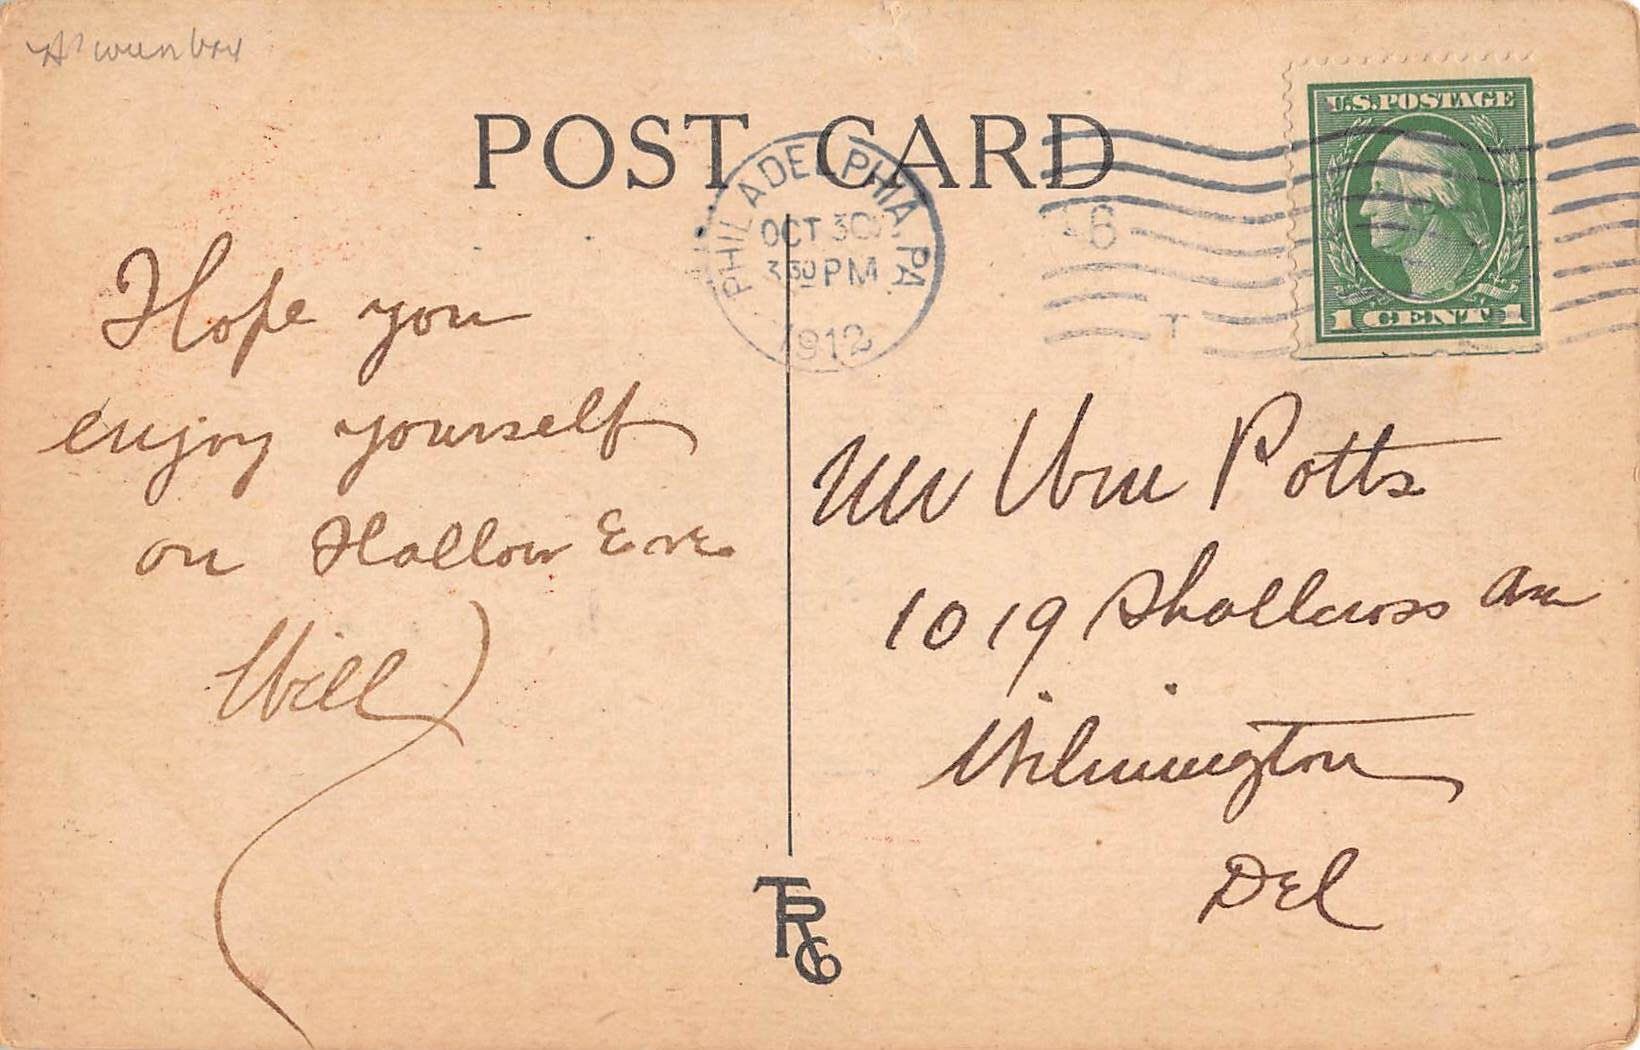 POST CARD
PHILADELPHIA PA
OCT 30
3 30 PM
1912
6
T
U.S. POSTAGE
1 CENT 1
Hope you
enjoy yourself
on Hallow Eve
Will
Mr Wm Potts
1019 Shallcross Ave
Wilmington
Del
TR Co